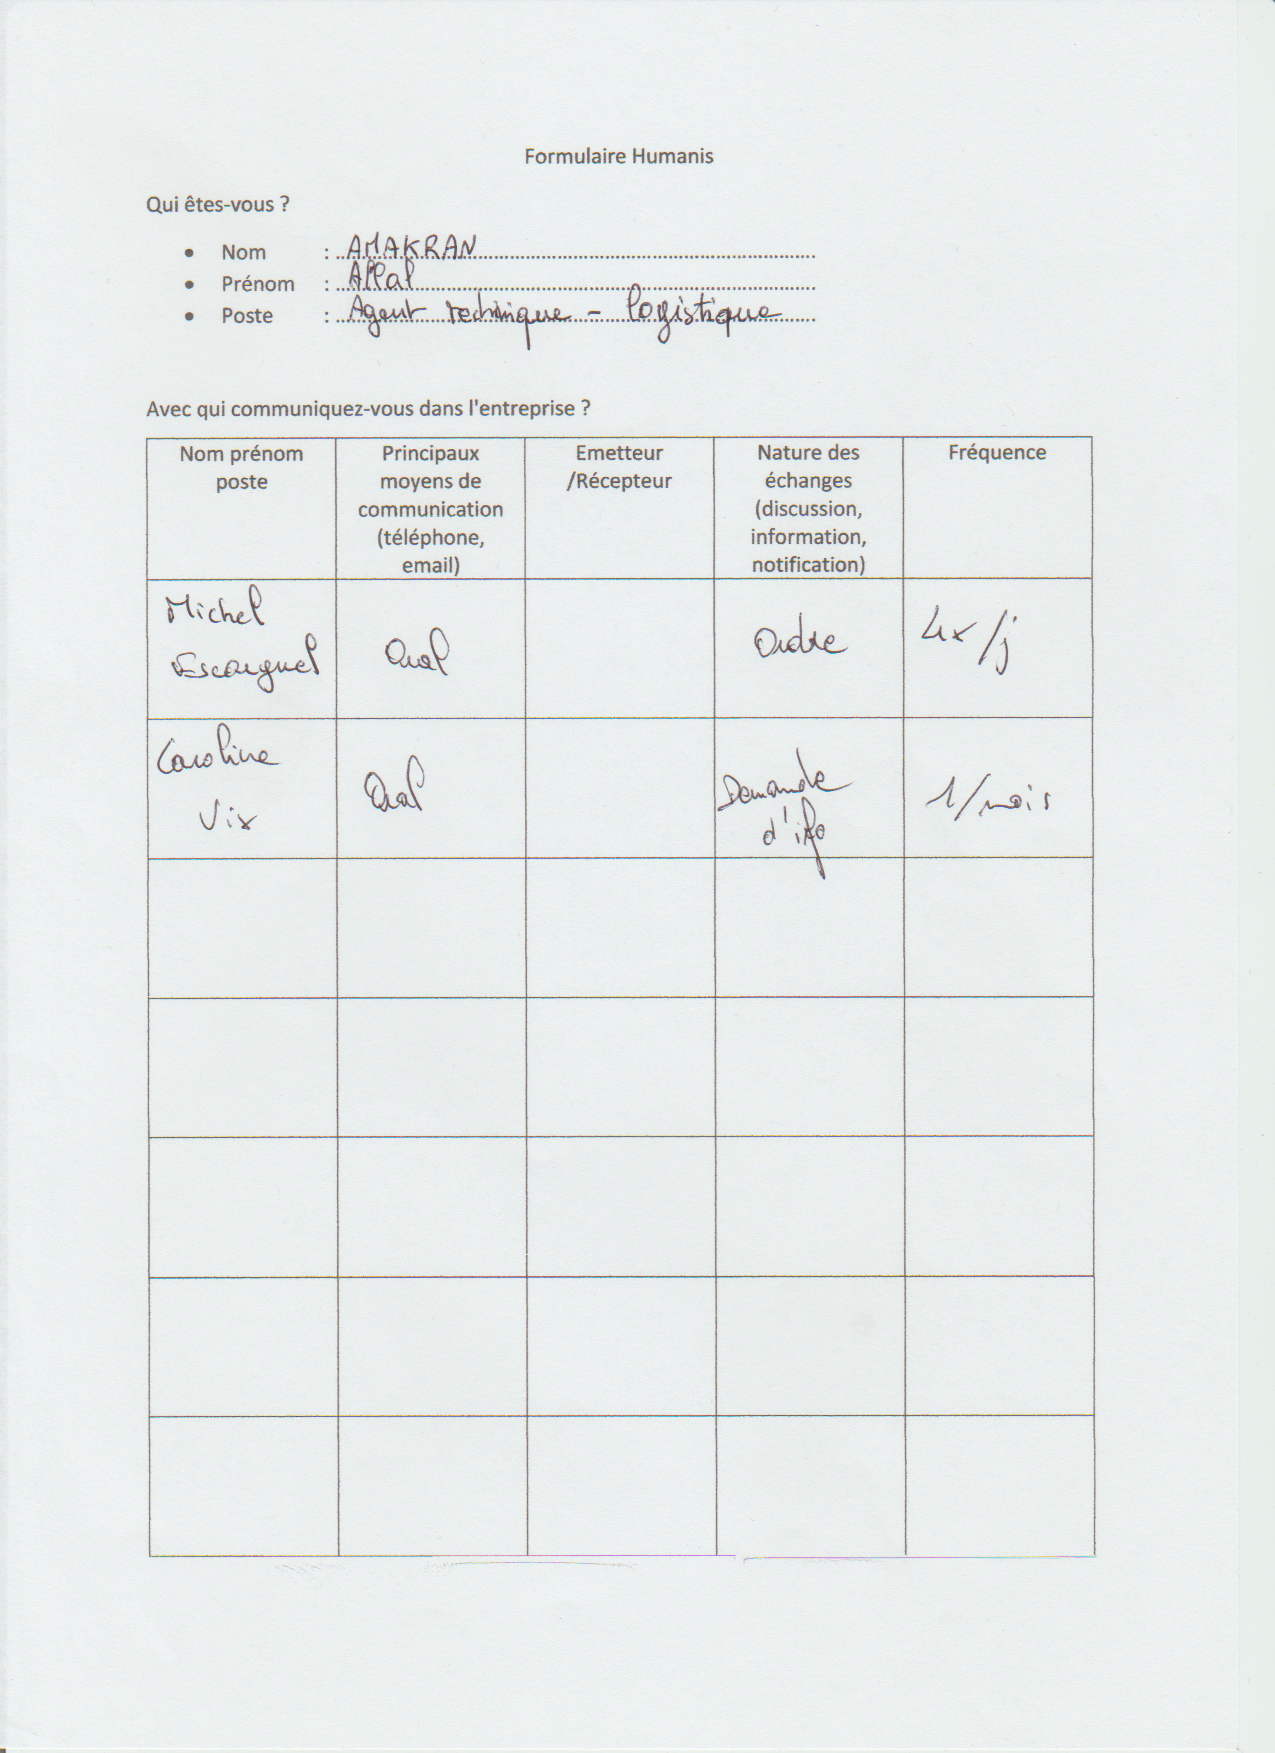 Formulaire Humanis
Qui êtes-vous ?
• Nom : AMAKRAN
• Prénom : Allal
• Poste : Agent technique - logistique
Avec qui communiquez-vous dans l'entreprise ?
Nom prénom
poste
Principaux
moyens de
communication
(téléphone,
email)
Emetteur
/Récepteur
Nature des
échanges
(discussion,
information,
notification)
Fréquence
Michel
Escarguel
Oral
Ordre
4x/j
Caroline
Vix
Oral
Demande
d'info
1/mois